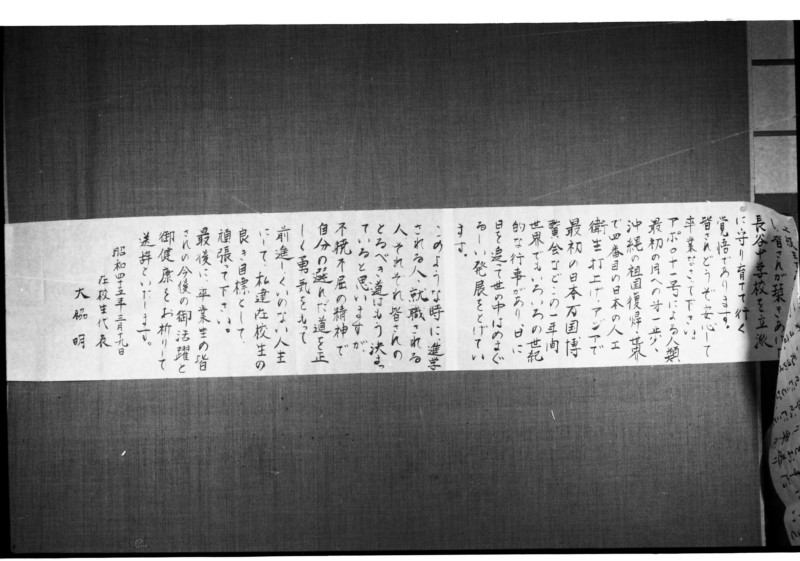 長谷中学校を立派
に守り育てて行く
覚悟であります。
皆さんどうぞ安心して
卒業なさって下さい。
アポロ十一号による人類
最初の月への第一歩、
沖縄の祖国復帰、世界
で四番目の日本の人工
衛生打上げ、アジアで
最初の日本万国博
覧会など、この一年間
世界でもいろいろの世紀
的な行事があり、日に
日を追って世の中はめまぐ
るしい発展をとげてい
ます。
このような時に進学
される人、就職される
人、それぞれ皆さんの
とるべき道はもう決まっ
ていると思いますが、
不撓不屈の精神で
自分の選んだ道を正
しく勇気をもって
前進し、くいのない人生
にして、私達在校生の
良き目標として
頑張って下さい。
最後に、卒業生の皆
さんの今後の御活躍と
御健康をお祈りして
送辞といたします。
昭和四十五年三月十九日
在校生代表
大脇明